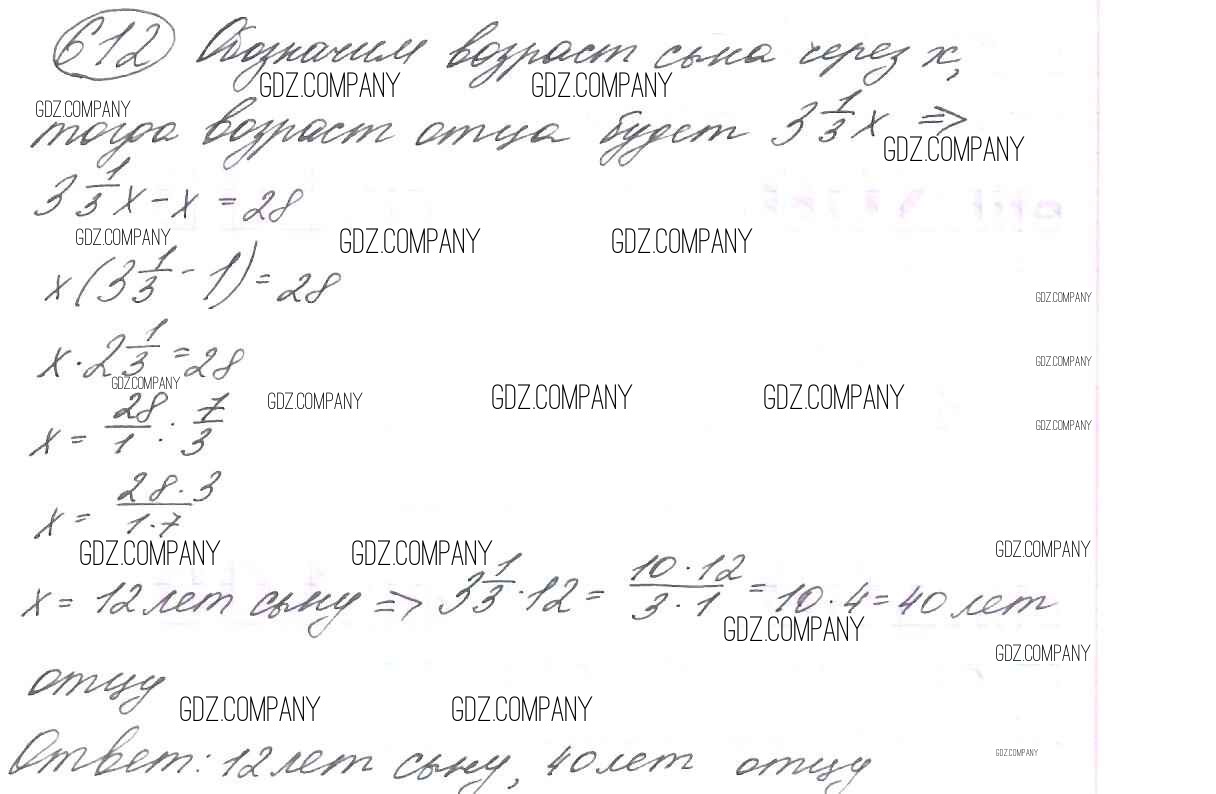 612 Обозначим возраст сына через x,
GDZ.COMPANY GDZ.COMPANY
GDZ.COMPANY
тогда возраст отца будет 3 1/3 x =>
GDZ.COMPANY
3 1/3 x - x = 28
GDZ.COMPANY GDZ.COMPANY GDZ.COMPANY
x (3 1/3 - 1) = 28
GDZ.COMPANY
x · 2 1/3 = 28
GDZ.COMPANY
GDZ.COMPANY GDZ.COMPANY GDZ.COMPANY GDZ.COMPANY
x = 28/1 : 7/3
GDZ.COMPANY
x = 28 · 3 / 1 · 7
GDZ.COMPANY GDZ.COMPANY GDZ.COMPANY
x = 12 лет сыну => 3 1/3 · 12 = 10 · 12 / 3 · 1 = 10 · 4 = 40 лет
GDZ.COMPANY
GDZ.COMPANY
отцу
GDZ.COMPANY GDZ.COMPANY
Ответ: 12 лет сыну, 40 лет отцу
GDZ.COMPANY